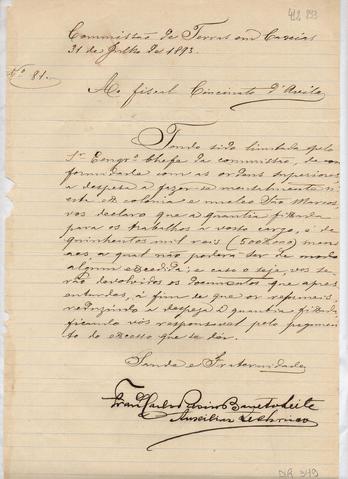 422 893
Commissão de Terras em Caxias
31 de Julho de 1893.
Nº 81.
Ao fiscal Cincinato d'Avila
Tendo sido limitada pelo
Sr Engrº Chefe da commissão, de con
formidade com as ordens superiores
a despeza a fazer-se mensalmente n'
esta ex colonia e nucleo São Marcos,
vos declaro que a quantia fixada
para os trabalhos a vosso cargo, é de
quinhentos mil reis (500$000) men
saes, a qual não poderá ser de modo
algum excedida; e caso o seja vos se
rão devolvidos os documentos que apre
sentardes, á fim de que os reformeis,
reduzindo a despeza á quantia fixada
ficando vós responsavel pelo pagamen
to do excesso que se der.
Saude e Fraternidade
Barreto Leite
Auxiliar Technico
349